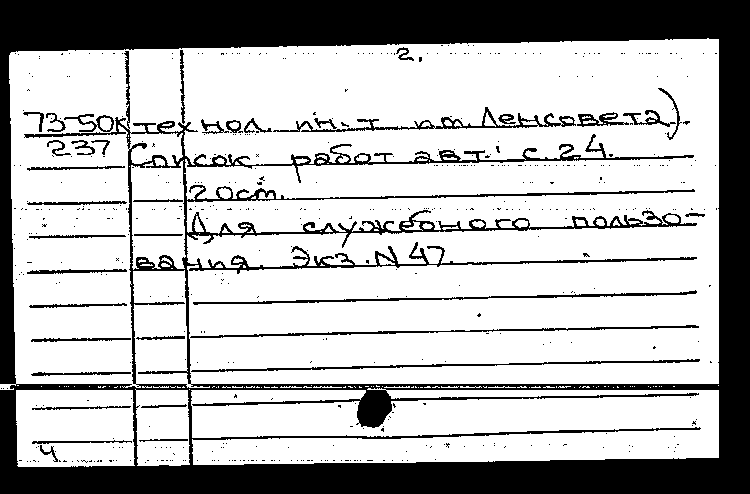 2.
73-50к технол. ин-т им. Ленсовета)
237 Список работ авт.: с. 24.
20 см.
Для служебного пользо-
вания. Экз. N 47.
4